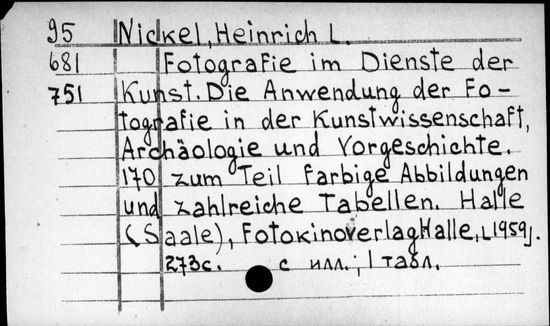 95 Nickel, Heinrich L.
681 Fotografie im Dienste der
751 Kunst. Die Anwendung der Fo-
tografie in der Kunstwissenschaft,
Archäologie und Vorgeschichte.
170 zum Teil farbige Abbildungen
und zahlreiche Tabellen. Halle
(Saale), Fotokinoverlag Halle, [1959].
273с. с илл.; 1 табл.